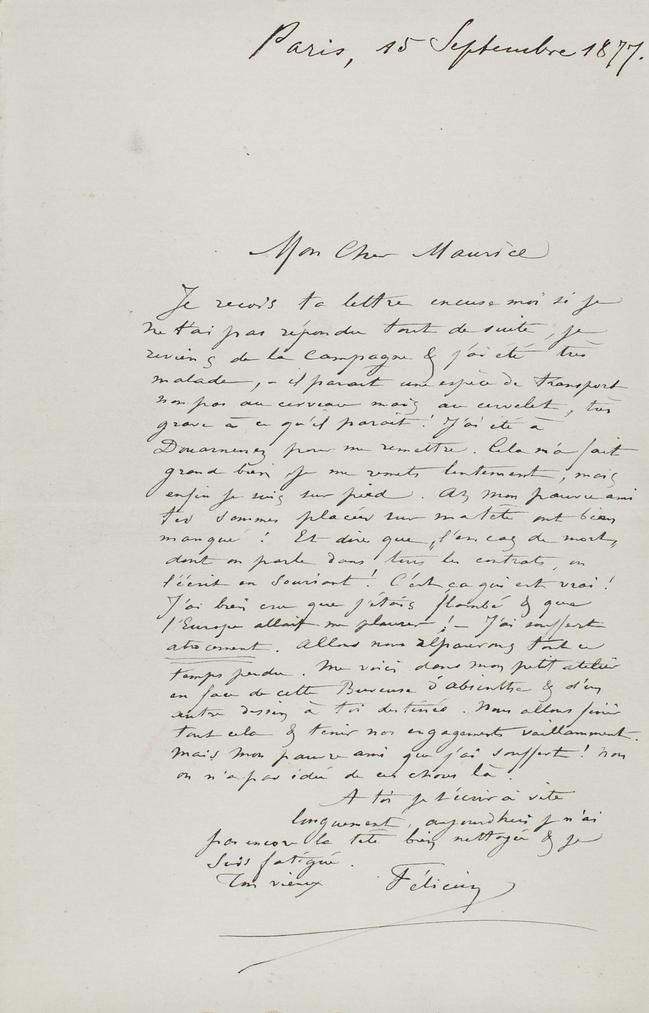 Paris, 15 Septembre 1877.
Mon Cher Maurice
Je reçois ta lettre excuse moi si je
ne t'ai pas répondu tout de suite, je
reviens de la campagne & j'ai été très
malade, – il parait une espèce de transport
non pas au cerveau mais au cervelet, très
grave à ce qu'il parait! J'ai été à
Douarnenez pour me remettre. Cela m'a fait
grand bien je me remets lentement, mais
enfin je suis sur pied. Ah mon pauvre ami
les sommes placées sur ma tête ont bien
manqué! Et dire que "l'en cas de mort"
dont on parle dans tous les contrats, on
l'écrit en souriant! C'est ça qui est vrai!
J'ai bien cru que j'étais flambé & que
l'Europe allait me pleurer! – J'ai souffert
atrocement. Allons nous réparerons tout ce
temps perdu. Me voici dans mon petit atelier
en face de cette Buveuse d'absinthe & d'un
autre dessin à toi destinés. Nous allons finir
tout cela & tenir nos engagements vaillamment.
Mais mon pauvre ami que j'ai souffert! Non
on n'a pas idée de ces choses là.
A toi je t'écrirai vite
longuement, aujourdhui je n'ai
pas encore la tête bien nettoyée & je
suis fatigué.
Ton vieux Félicien